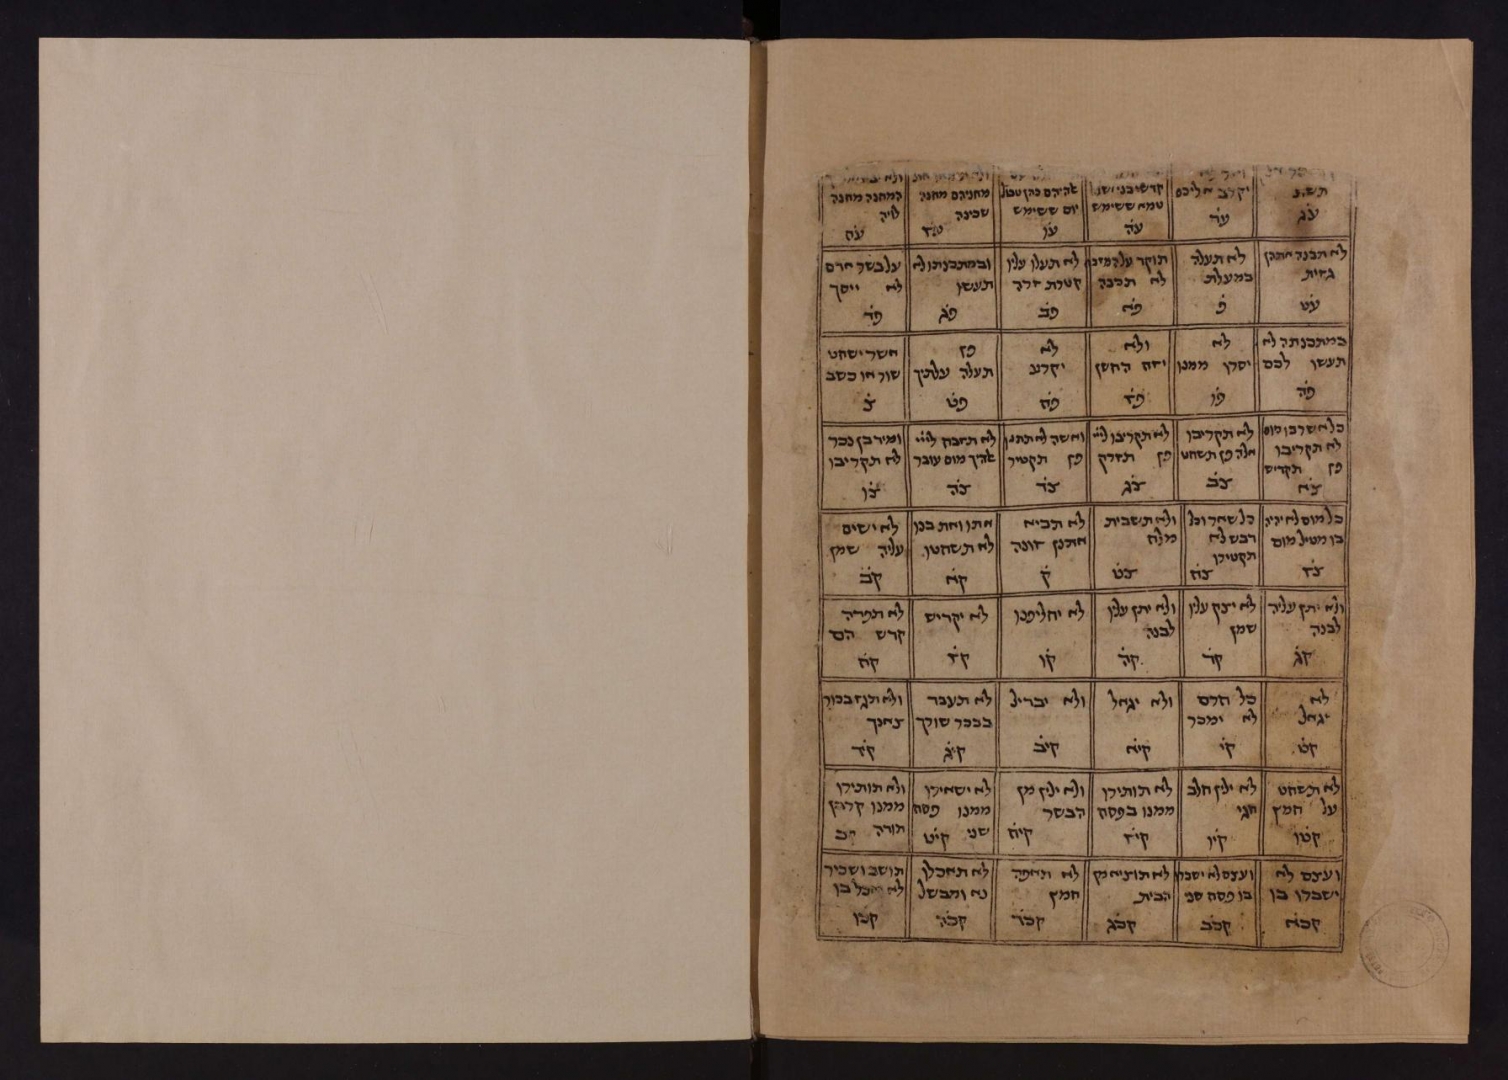 תשיג
עג
יקרב אליכם
עד
קדשי בני ישר
טמא ששימש
עה
אהיהם כהן טבול
יום ששימש
עו
מחניהם מחנה
שכינה
עז
המחנה מחנה
לויה
עח
לא תבנה אתהן
גזית
עט
לא תעלה
במעלת
פ
תוקד על המזבח
לא תכבה
פא
לא תעלו עליו
קטרת זרה
פב
ובמתכנתו לא
תעשו
פג
על בשר אדם
לא ייסך
פד
במתכנתה לא
תעשו לכם
פה
לא
יסרו ממנו
פו
ולא
יזח החשן
פז
לא
יקרע
פח
פן
תעלה עלתיך
פט
אשר ישחט
שור או כשב
צ
כל אשר בו מום
לא תקריבו
פן תקדיש
צא
לא תקריבו
אלה פן תשחט
צב
לא תקריבו ליי
פן תזרק
צג
ואשה לא תתנו
פן תקטיר
צד
לא תזבח ליי
אהיך מום עובר
צה
ומיד בן נכר
לא תקריבו
צו
כל מום לא יהיה
בו מטיל מום
צז
כל שאר וכל
דבש לא
תקטירו
צח
ולא תשבית
מלח
צט
לא תביא
אתנן זונה
ק
אתו ואת בנו
לא תשחטו
קא
לא ישים
עליה שמן
קב
ולא יתן עליה
לבנה
קג
לא יצק עליו
שמן
קד
ולא יתן עליו
לבנה
קה
לא יחליפנו
קו
לא יקדיש
קז
לא תפדה
קדש הם
קח
לא
יגאל
קט
כל חרם
לא ימכר
קי
ולא יגאל
קיא
ולא יבדיל
קיב
לא תעבד
בבכר שורך
קיג
ולא תגז בכור
צאנך
קיד
לא תשחט
על חמץ
קטו
לא ילין חלב
חגי
קיו
לא תותירו
ממנו בפסח
קיז
ולא ילין מן
הבשר
קיח
לא ישאירו
ממנו פסח
שני קיט
ולא תותירו
ממנו קרבן
תודה קכ
ועצם לא
ישברו בו
קכא
ועצם לא ישברו
בו פסח שני
קכב
לא תוציא מן
הבית
קכג
לא תאפה
חמץ
קכד
לא תאכלו
נא ומבשל
קכה
תושב ושכיר
לא יאכל בו
קכו